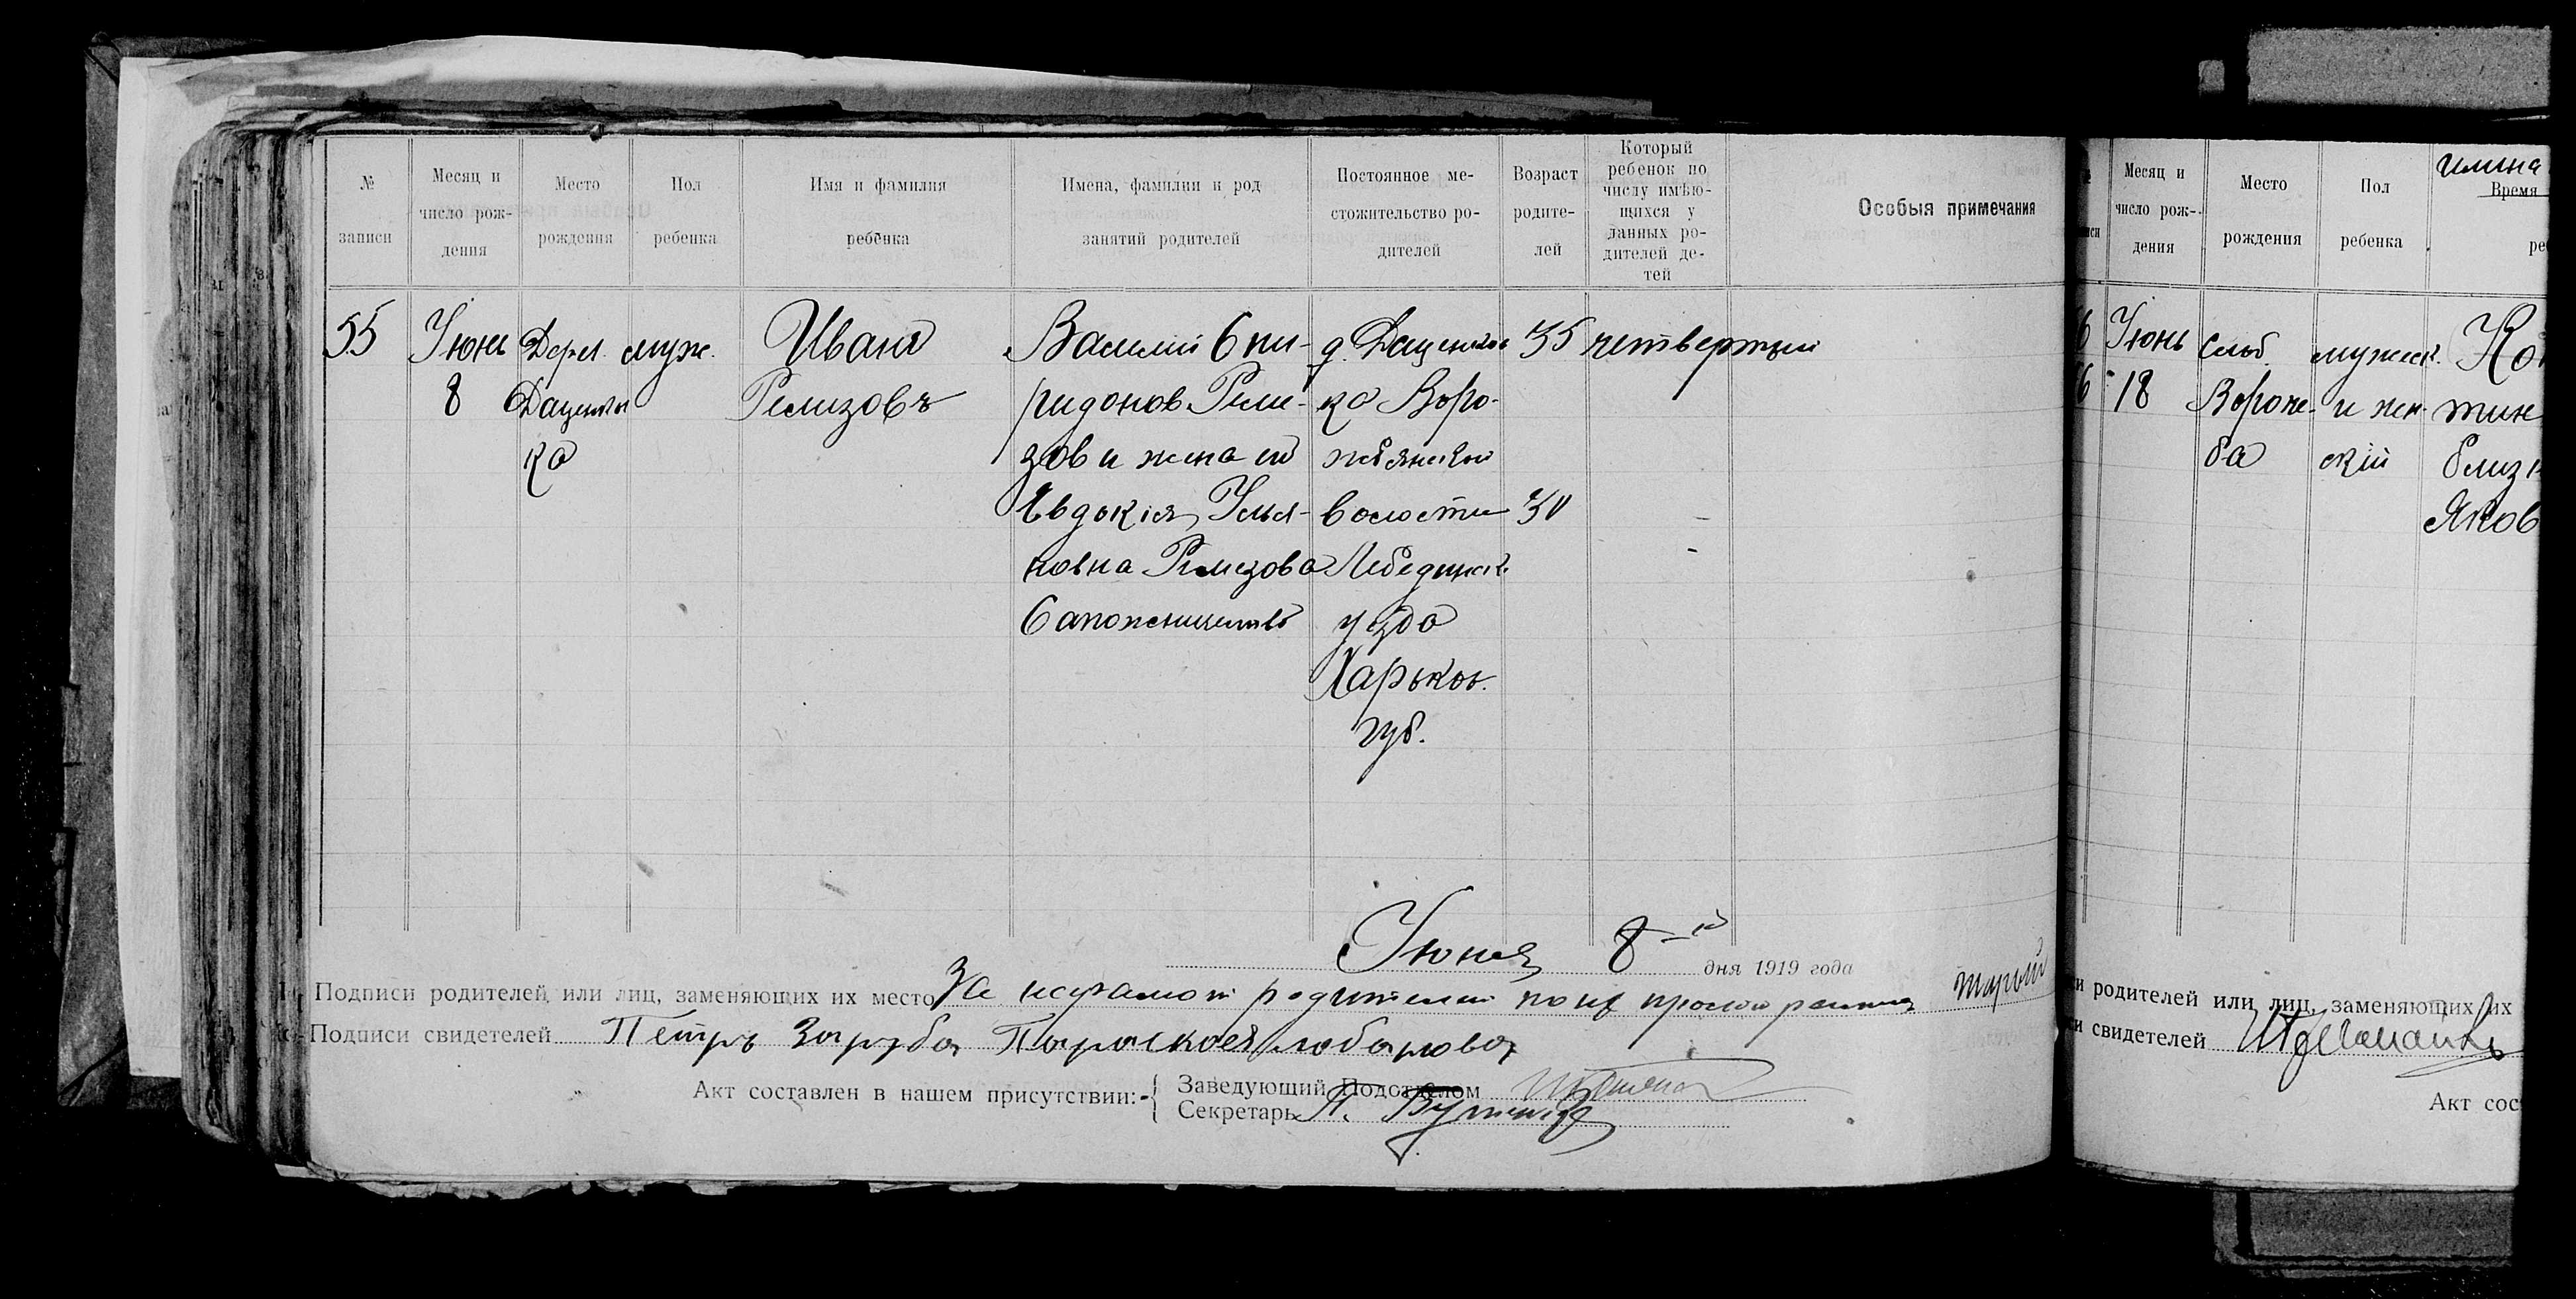 № записи
Месяц и число рождения
Место рождения
Пол ребенка
Имя и фамилия ребенка
Имена, фамилии и род занятий родителей
Постоянное местожительство родителей
Возраст родителей
Который ребенок по числу имѣющихся у данных родителей детей
Особыя примечания
55
Июнь
8
Дерев.
Даценков
ка
муж.
Иванъ
Ремизовъ
Василий Спи-
ридонов Реми-
зов и жена ей
Евдокія Улья-
новна Ремизова
Сапожничество
д. Даценков
ка Воро-
жбянской
волости
Лебединск.
уезда
Харьков.
губ.
35
30
четвертый
Июня 8-й дня 1919 года
Подписи родителей или лиц, заменяющих их место За неграмотн родителей по их просьбе
Подписи свидетелей Петръ Заруба Параскося
Акт составлен в нашем присутствии:
Заведующий Подотделом
Секретарь
Месяц и число рождения
Место рождения
Пол ребенка
Время
Июнь
18
Слоб.
Ворож-
ба
мужеск.
и жен-
ский
тин
близн
Яков
родителей или лиц, заменяющих их
свидетелей
Акт сос